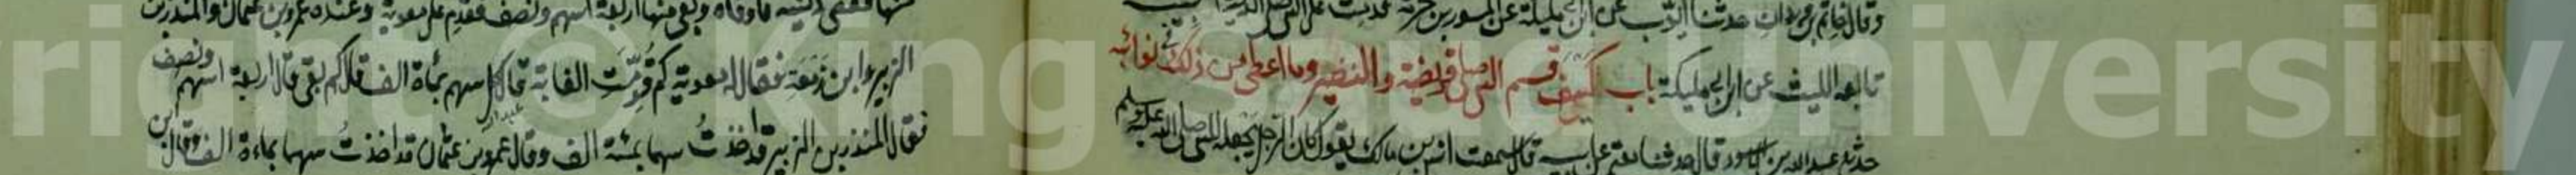 وقال حاتم بن وردان حدثنا ايوب عن ابن ابي مليكة عن المسور بن مخرمة قدمت على النبي صلى الله عليه
تابعه الليث عن ابن ابي مليكة باب كيف قسم النبي صلى قريضة والنضير وما اعطى من ذلك في نوائبه
حدثنا عبدالله بن ابي الاسود قال حدثنا معتمر عن ابيه قال سمعت انس بن مالك يقول كان الرجل يجعل للنبي صلى الله عليه وسلم
منها فقضى دينه فاوفاه وبقي منها اربعة اسهم ونصف فقدم على معوية وعنده عمرو بن عثمان والمنذر بن
الزبير وابن زمعة فقال له معوية كم قومت الغابة قال كل سهم بمأة الف قال كم بقي قال اربعة اسهم ونصف
فقال المنذر بن الزبير قد اخذت سهما بمئة الف وقال عمرو بن عثمان قد اخذت سهما بماءة الف وقال ابن
right © King Saud University